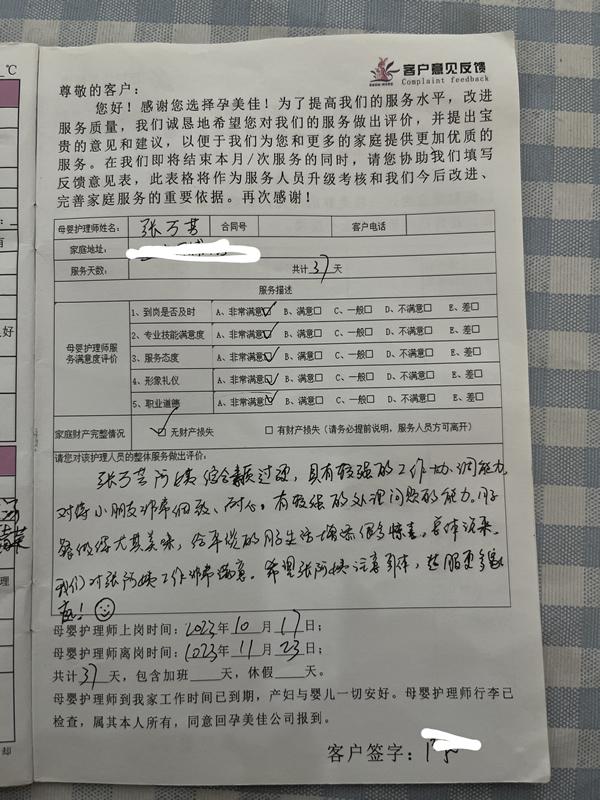 ℃
客户意见反馈
Complaint feedback
尊敬的客户：
您好！感谢您选择孕美佳！为了提高我们的服务水平，改进
服务质量，我们诚恳地希望您对我们的服务做出评价，并提出宝
贵的意见和建议，以便于我们为您和更多的家庭提供更加优质的
服务。在我们即将结束本月/次服务的同时，请您协助我们填写
反馈意见表，此表格将作为服务人员升级考核和我们今后改进、
完善家庭服务的重要依据。再次感谢！
母婴护理师姓名： 张万芸 合同号 客户电话
家庭地址：
服务天数： 共计37天
服务描述
母婴护理师服务满意度评价
1、到岗是否及时 A、非常满意☑ B、满意□ C、一般□ D、不满意□ E、差□
2、专业技能满意度 A、非常满意☑ B、满意□ C、一般□ D、不满意□ E、差□
3、服务态度 A、非常满意☑ B、满意□ C、一般□ D、不满意□ E、差□
4、形象礼仪 A、非常满意☑ B、满意□ C、一般□ D、不满意□ E、差□
5、职业道德 A、非常满意☑ B、满意□ C、一般□ D、不满意□ E、差□
家庭财产完整情况 ☑ 无财产损失 □ 有财产损失（请务必提前说明，服务人员方可离开）
请您对该护理人员的整体服务做出评价：
张万芸阿姨综合素质过硬，具有较强的工作协调能力。
对待小朋友非常细致、耐心。有较强的处理问题的能力。月子
餐做得尤其美味，给平淡的月子生活增添很多惊喜。总体说来，
我们对张阿姨工作非常满意。希望张阿姨注意身体，造服更多家
庭！
母婴护理师上岗时间：2023年10月17日；
母婴护理师离岗时间：2023年11月23日；
共计37天，包含加班____天，休假____天。
母婴护理师到我家工作时间已到期，产妇与婴儿一切安好。母婴护理师行李已
检查，属其本人所有，同意回孕美佳公司报到。
客户签字：